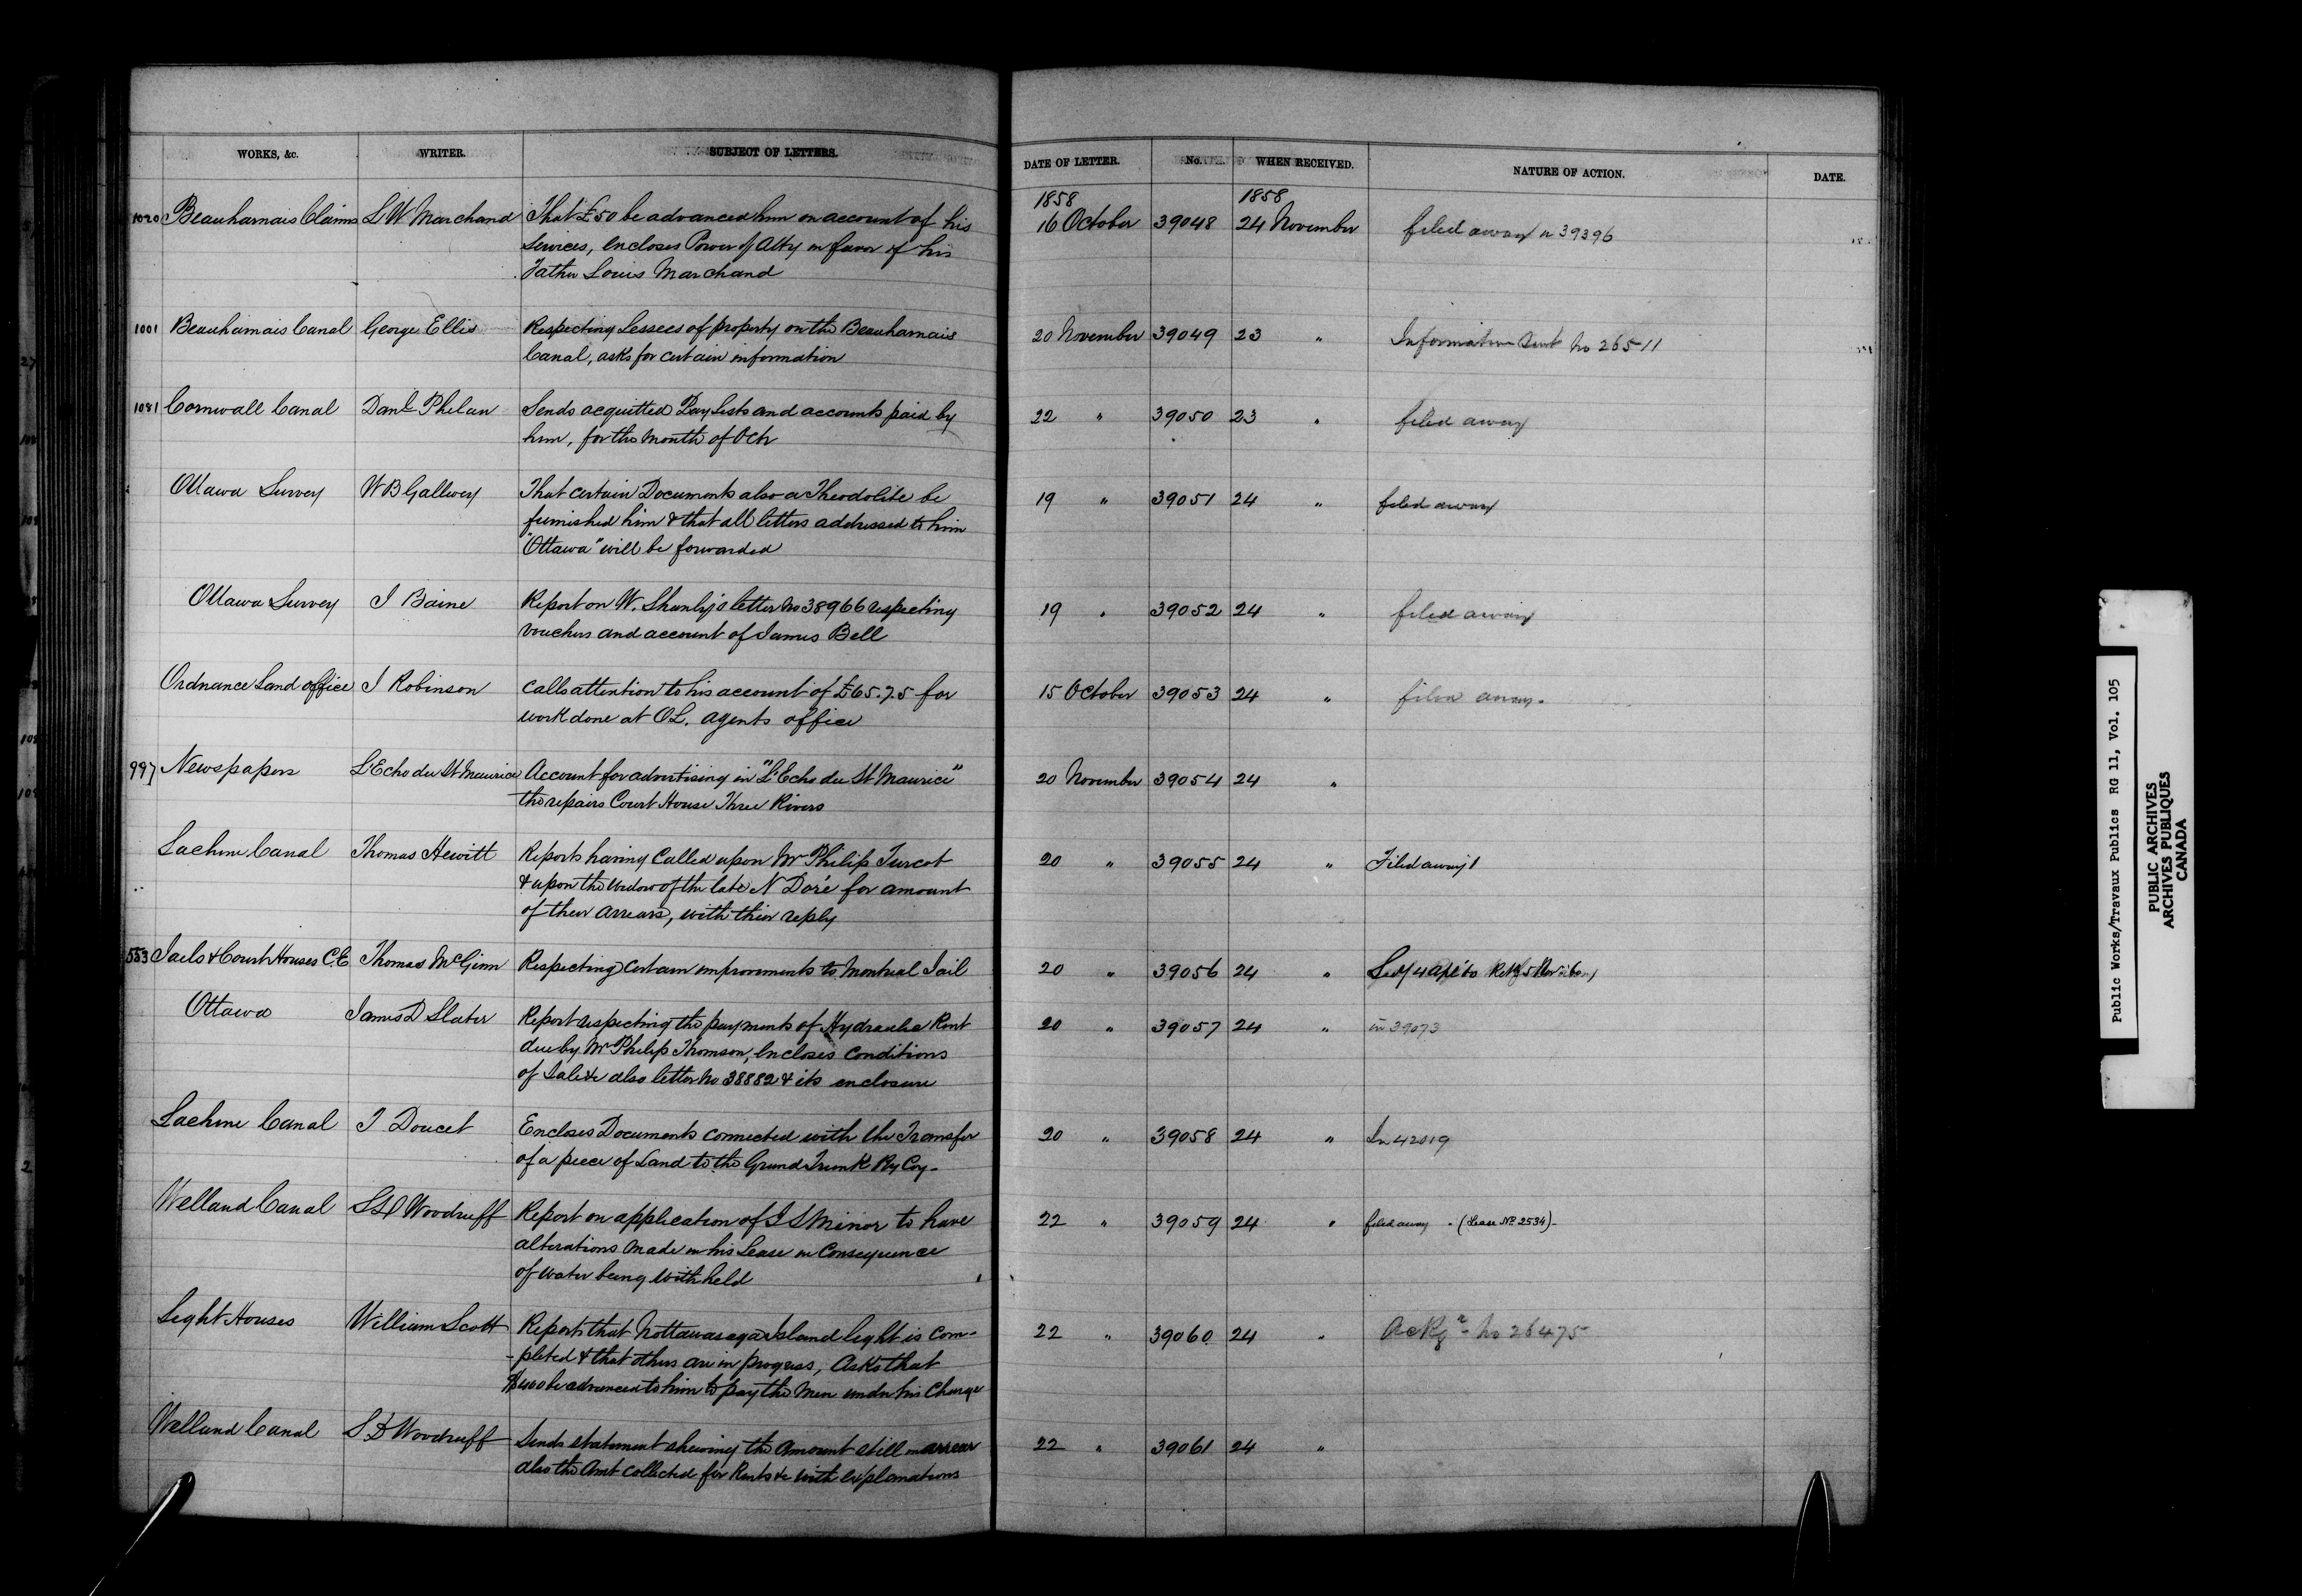 WORKS, &c. WRITER. SUBJECT OF LETTERS. DATE OF LETTER. No. WHEN RECEIVED. NATURE OF ACTION. DATE.
1858 1858
1020 Beauharnais Claims L W Marchand That £50 be advanced him on account of his 16 October 39048 24 November filed away in 39396
Services, encloses Power of Atty in favor of his
Father Louis Marchand
1001 Beauharnais Canal George Ellis Respecting Lessees of property on the Beauharnais 20 November 39049 23 " Information sent No 26511
Canal, asks for certain information
1081 Cornwall Canal Danl Phelan Sends acquitted Pay Lists and accounts paid by 22 " 39050 23 " filed away
him, for the Month of Octr
Ottawa Survey W B Gallwey That certain Documents also a Theodolite be 19 " 39051 24 " filed away
furnished him & that all letters addressed to him
"Ottawa" will be forwarded
Ottawa Survey J Baine Report on W. Shanly's letter No 38966 respecting 19 " 39052 24 " filed away
vouchers and account of James Bell
Ordnance Land office J Robinson calls attention to his account of £65.7.5 for 15 October 39053 24 " filed away.
work done at O L. agents office
997 Newspapers L'Echo du St Maurice Account for advertising in "L'Echo du St Maurice" 20 November 39054 24 "
the repairs Court House Three Rivers
Lachine Canal Thomas Hewitt Reports having Called upon Mr Philip Turcot 20 " 39055 24 " Filed away
& upon the widow of the late N Doré for amount
of their arrears, with their reply
553 Jails & Court Houses C.E Thomas McGinn Respecting certain improvements to Montreal Jail 20 " 39056 24 "
Ottawa James D Slater Report respecting the payments of Hydraulic Rent 20 " 39057 24 " in 39073
due by Mr Philip Thomson, encloses conditions
of Sale &c also letter No 38882 & its enclosure
Lachine Canal T Doucet Encloses Documents connected with the Transfer 20 " 39058 24 " In 42019
of a piece of Land to the Grand Trunk Ry Coy-
Welland Canal S D Woodruff Report on application of I S Minor to have 22 " 39059 24 " filed away . (Lease No 2534)-
alterations made in his Lease in Consequence
of water being withheld
Light Houses William Scott Reports that Nottawasaga Island light is com- 22 " 39060 24 " Ackgd - No 26475
-pleted & that others are in progress, Asks that
$400 be advanced to him to pay the Men under his Charge
Welland Canal S D Woodruff Sends statement shewing the Amount still in arrear 22 " 39061 24 "
also the Amt collected for Rents &c with explanations
Public Works/Travaux Publics RG 11, Vol. 105
PUBLIC ARCHIVES
ARCHIVES PUBLIQUES
CANADA